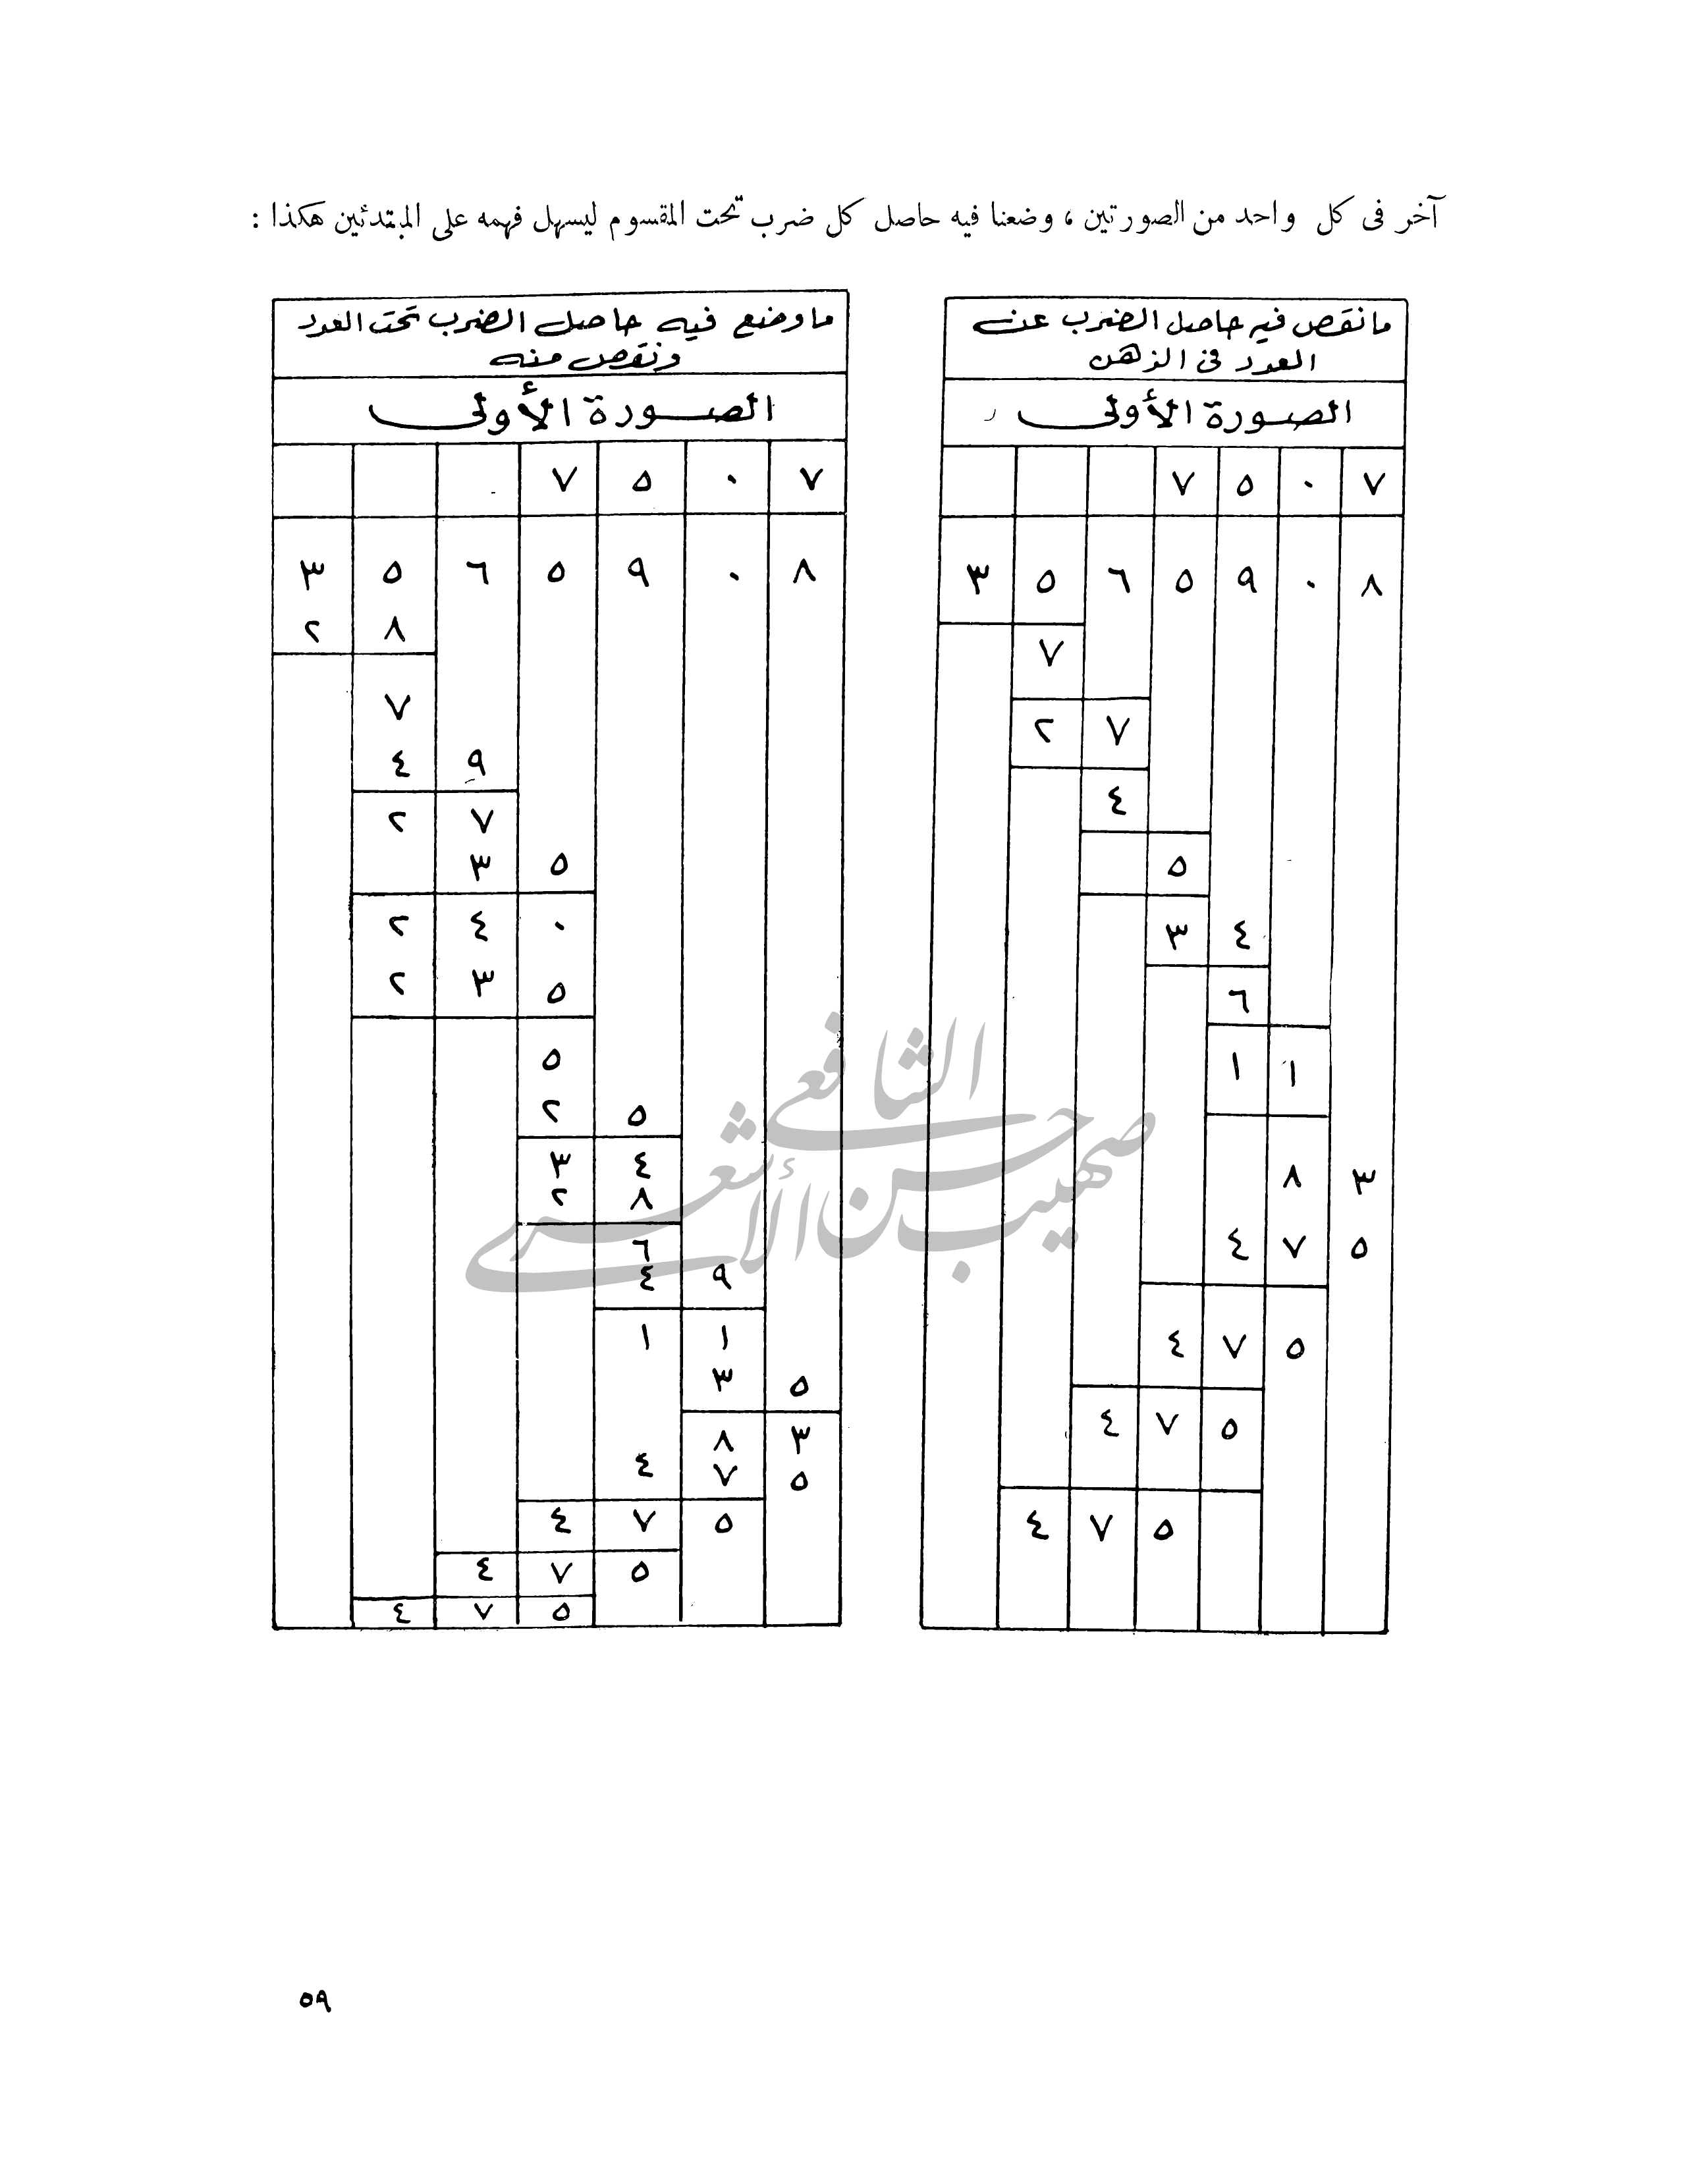 آخر فى كل واحد من الصورتين ، وضعنا فيه حاصل كل ضرب تحت المقسوم ليسهل فهمه على المبتدئين هكذا :
ما نقص فيه حاصل الضرب عن
العدد فى الذهن
الصورة الأولى
٧ ٥ ٠ ٧
٣ ٥ ٦ ٥ ٩ ٠ ٨
٧
٢ ٧
٤
٥
٣ ٤
٦
١ ١
٨ ٣
٤ ٧ ٥
٤ ٧ ٥
٤ ٧ ٥
٤ ٧ ٥
ما وضع فيه حاصل الضرب تحت العدد
ونقص منه
الصورة الأولى
٧ ٥ ٠ ٧
٣ ٥ ٦ ٥ ٩ ٠ ٨
٢ ٨
٧
٤ ٩
٢ ٧
٣ ٥
٢ ٤ ٠
٢ ٣ ٥
٥
٢ ٥
٣ ٤
٢ ٨
٦
٤ ٩
١ ١
٣ ٥
٨ ٣
٤ ٧ ٥
٤ ٧ ٥
٤ ٧ ٥
٤ ٧ ٥
صهيب حسن الشافعي الأشعري
٥٩